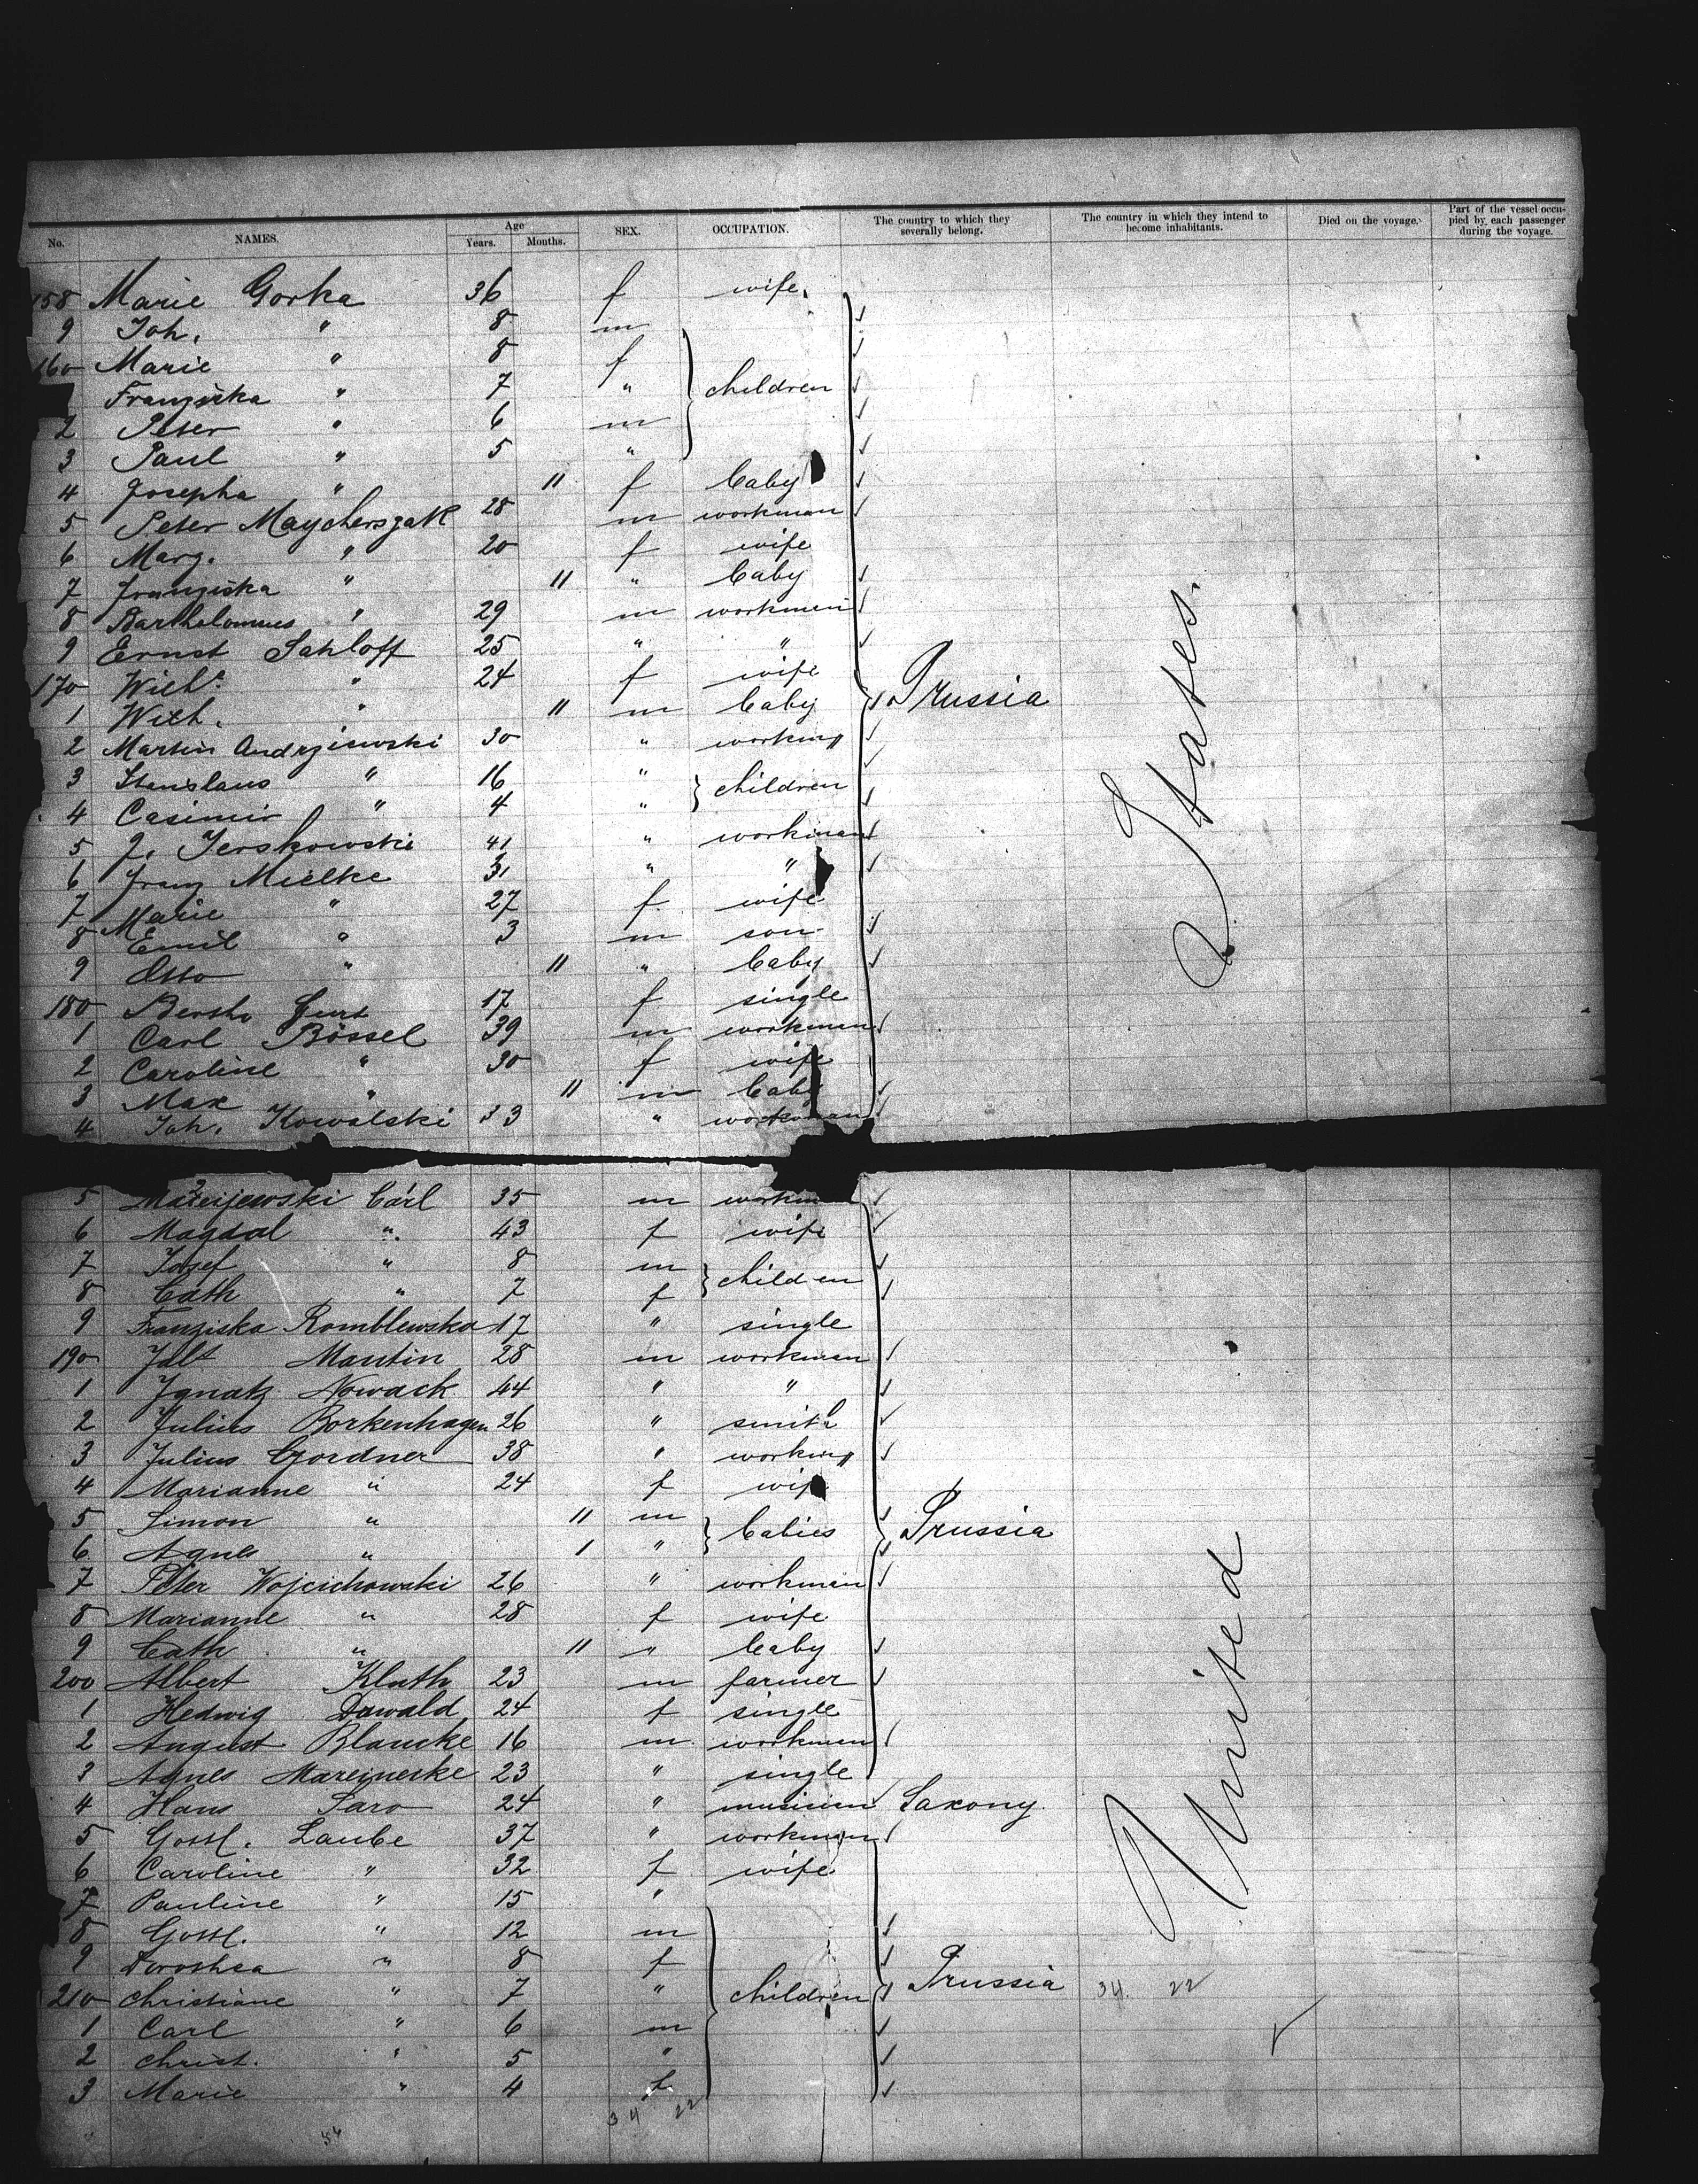 No. NAMES. Age Years. Months. SEX. OCCUPATION. The country to which they severally belong. The country in which they intend to become inhabitants. Died on the voyage. Part of the vessel occupied by each passenger during the voyage.
158 Marie Gorka 36 f wife
9 Joh. " 8 m
160 Marie " 8 f
Franziska " 7 " children
2 Peter " 6 m
3 Paul " 5 "
4 Josepha " 11 f baby
5 Peter Maycherszak 28 m workman
6 Marg. " 20 f wife
7 Franziska " 11 " baby
8 Bartholomus " 29 m workmen
9 Ernst Sahloff 25 " "
170 Wilh. " 24 f wife Prussia
1 Wilh. " 11 m baby
2 Martin Andrziewski 30 " working
3 Stanislaus " 16 " children
4 Casimir " 4 "
5 J. Jerskowski 41 " workman
6 Franz Mielke 31 " "
7 Marie " 27 f wife
8 Emil " 3 m son
9 Otto " 11 " baby
180 Bertha 17 f single
1 Carl Bössel 39 m workman
2 Caroline " 30 f wife
3 Max " 11 m baby
4 Joh. Kowalski 33 " workman
5 Mazeijewski Carl 35 m workm
6 Magdal " 43 f wife
7 Josef " 8 m children
8 Cath " 7 f
9 Franziska Romblewska 17 " single
190 Martin 28 m workman
1 Ignatz Nowack 44 " "
2 Julius Borkenhagen 26 " smith
3 Julius Gordner 38 " working
4 Marianne " 24 f wife
5 Simon " 11 m babies Prussia
6 Agnes " 1 "
7 Peter Wojcichowski 26 " workman
8 Marianne " 28 f wife
9 Cath " 11 " baby
200 Albert Kluth 23 m farmer
1 Hedwig Dawald 24 f single
2 August Blancke 16 m workman
3 Agnes Mareineske 23 " single
4 Hans Saro 24 " musician Saxony.
5 Gottl. Laube 37 " workman
6 Caroline " 32 f wife
7 Pauline " 15 "
8 Gottl. " 12 m
9 Dorothea " 8 f
210 Christiane " 7 " children Prussia 34. 22
1 Carl " 6 m
2 Christ. " 5 "
3 Marie " 4 f
34 22
United States.